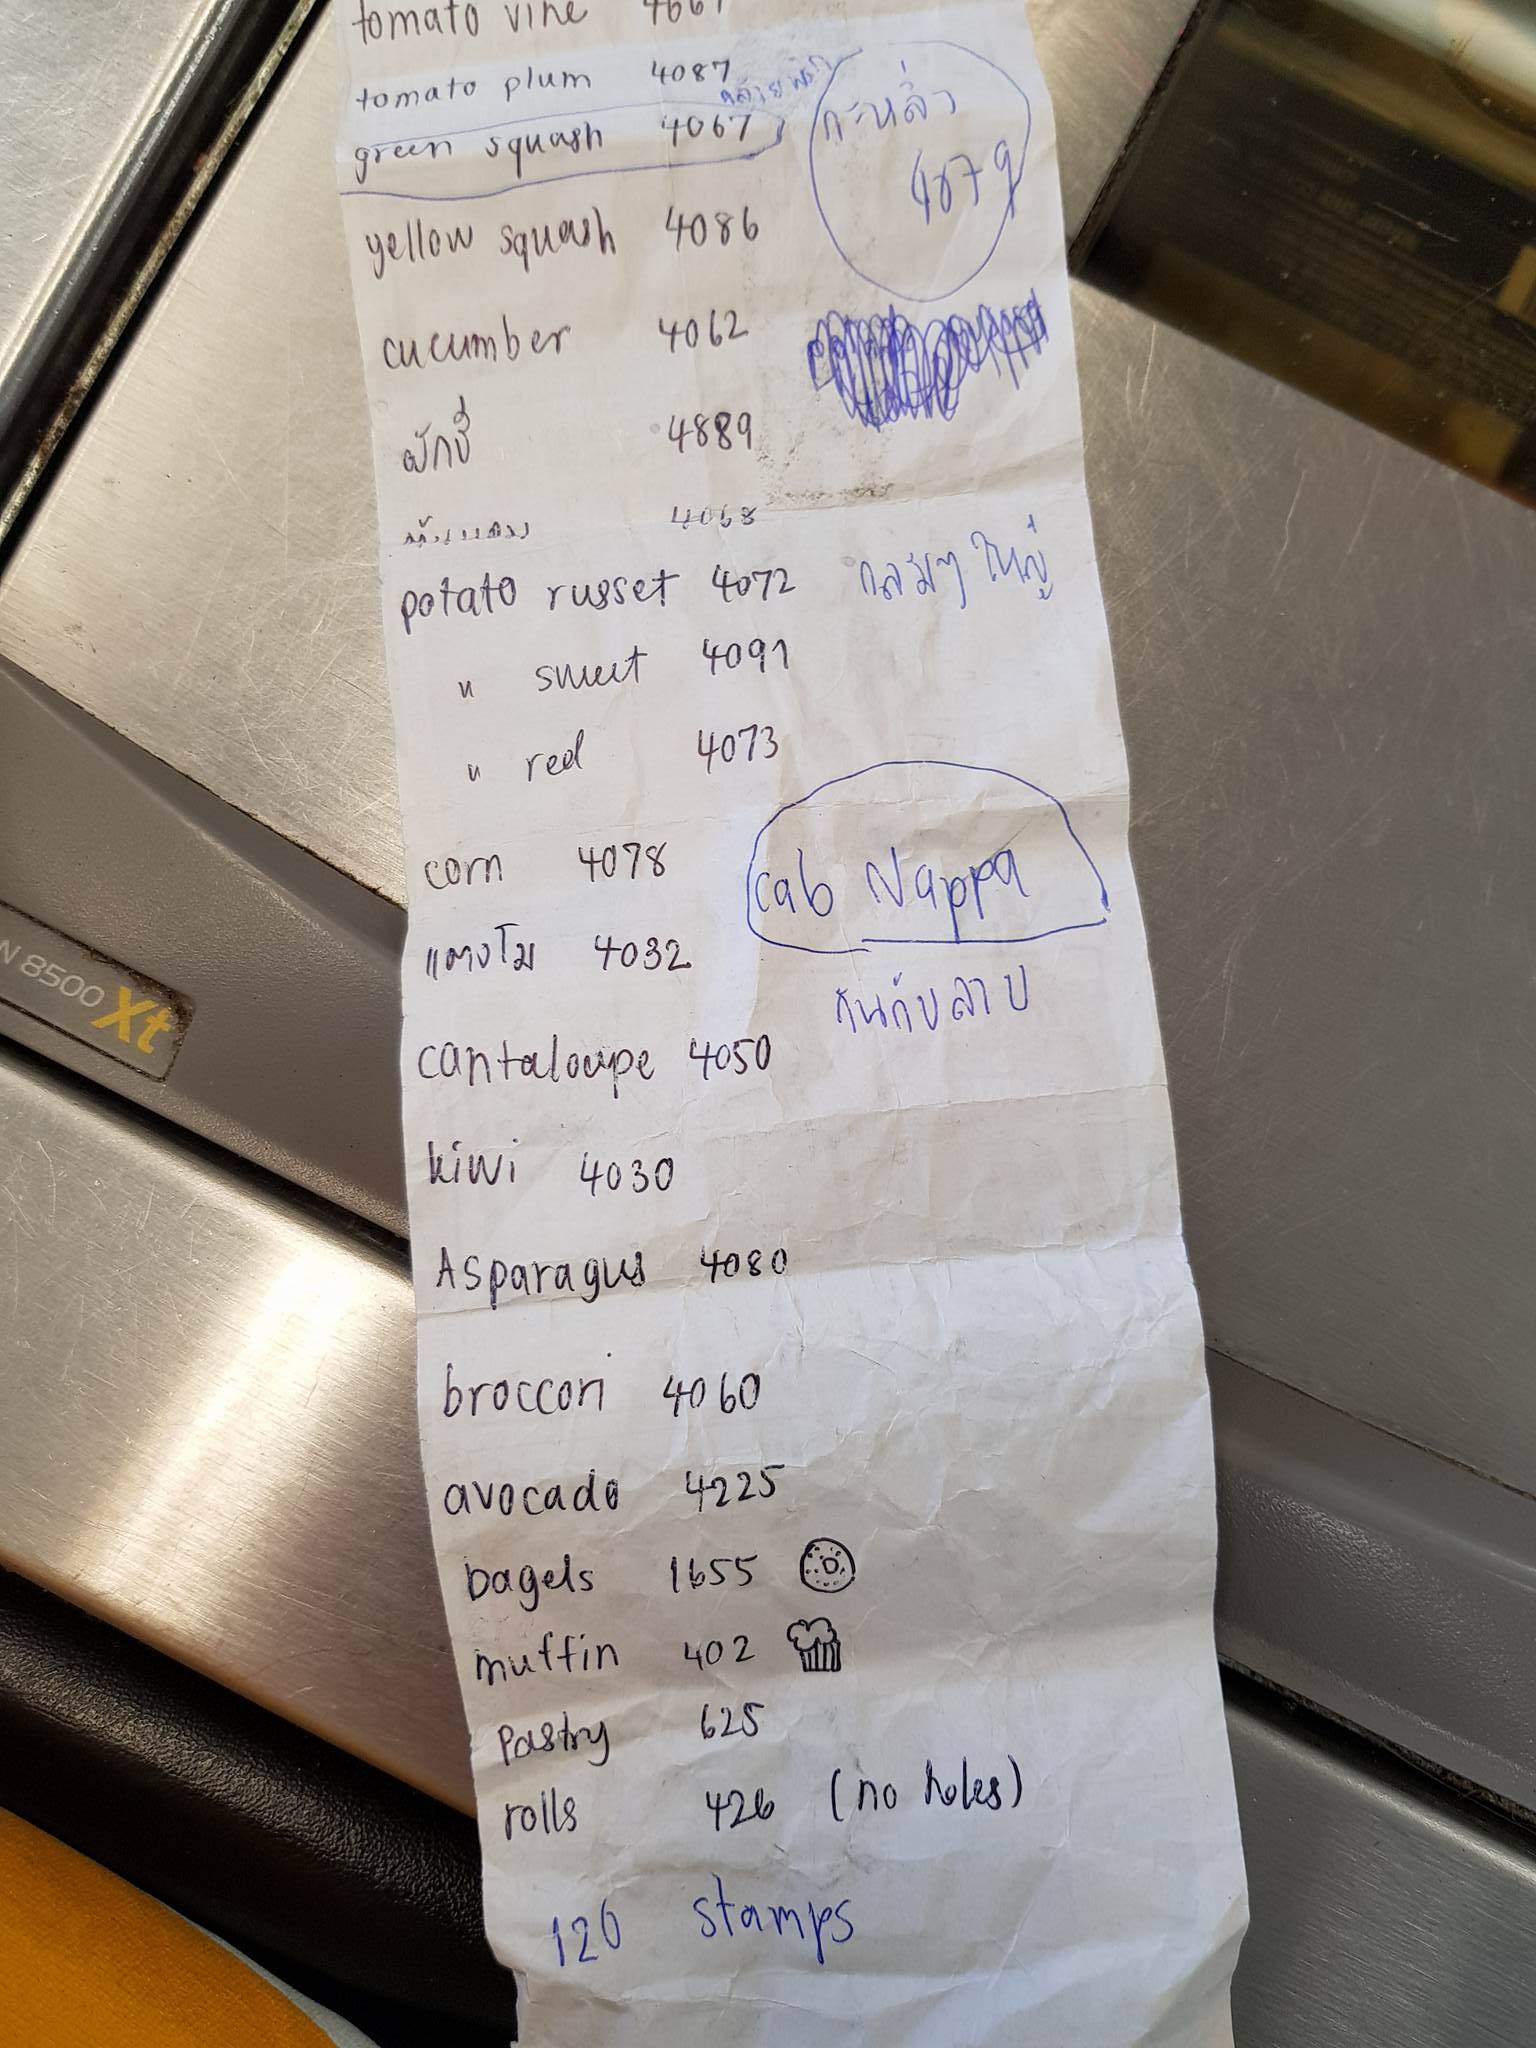 tomato vine 4664
tomato plum 4087 คล้ายพริก
green squash 4067
กะหล่ำ
4079
yellow squash 4086
cucumber 4062
ผักชี 4889
4068
potato russet 4072 กลมๆ ใหญ่
" sweet 4091
" red 4073
corn 4078
cab Nappa
แตงโม 4032
กินกับลาบ
cantaloupe 4050
kiwi 4030
Asparagus 4080
broccori 4060
avocado 4225
bagels 1655
muffin 402
pastry 625
rolls 426 (no holes)
120 stamps
N 8500 Xt